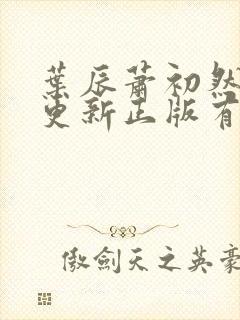 葉辰蕭初然
更新正版有
傲劍天之英豪